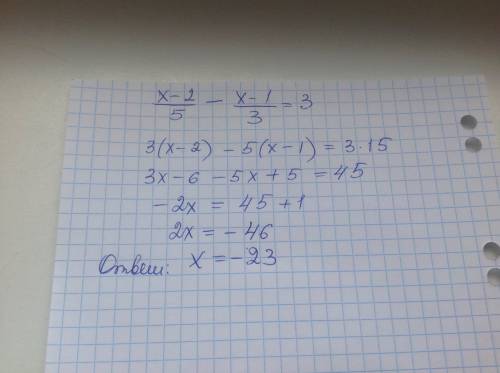 (x-2)/5 - (x-1)/3 = 3
3(x-2) - 5(x-1) = 3·15
3x-6 -5x+5 = 45
-2x = 45+1
2x = -46
Ответ: x = -23